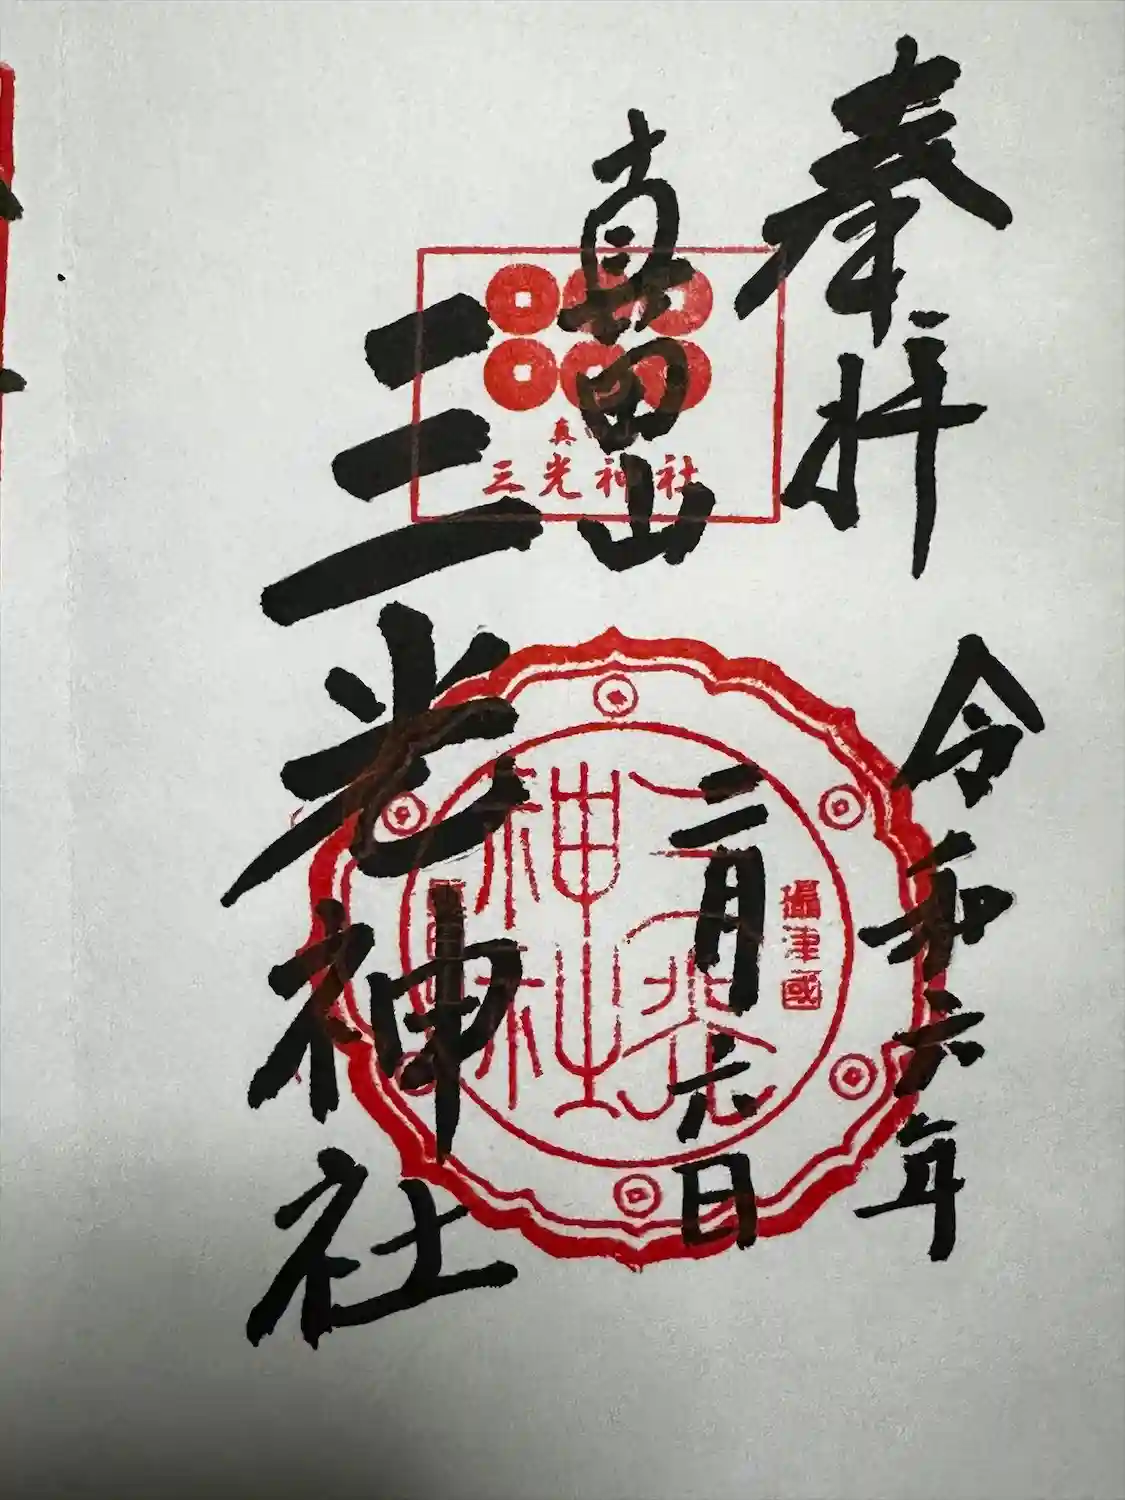 奉拝
令和六年
真田山
二月六日
三光神社
三光神社
攝津國
三光
神社